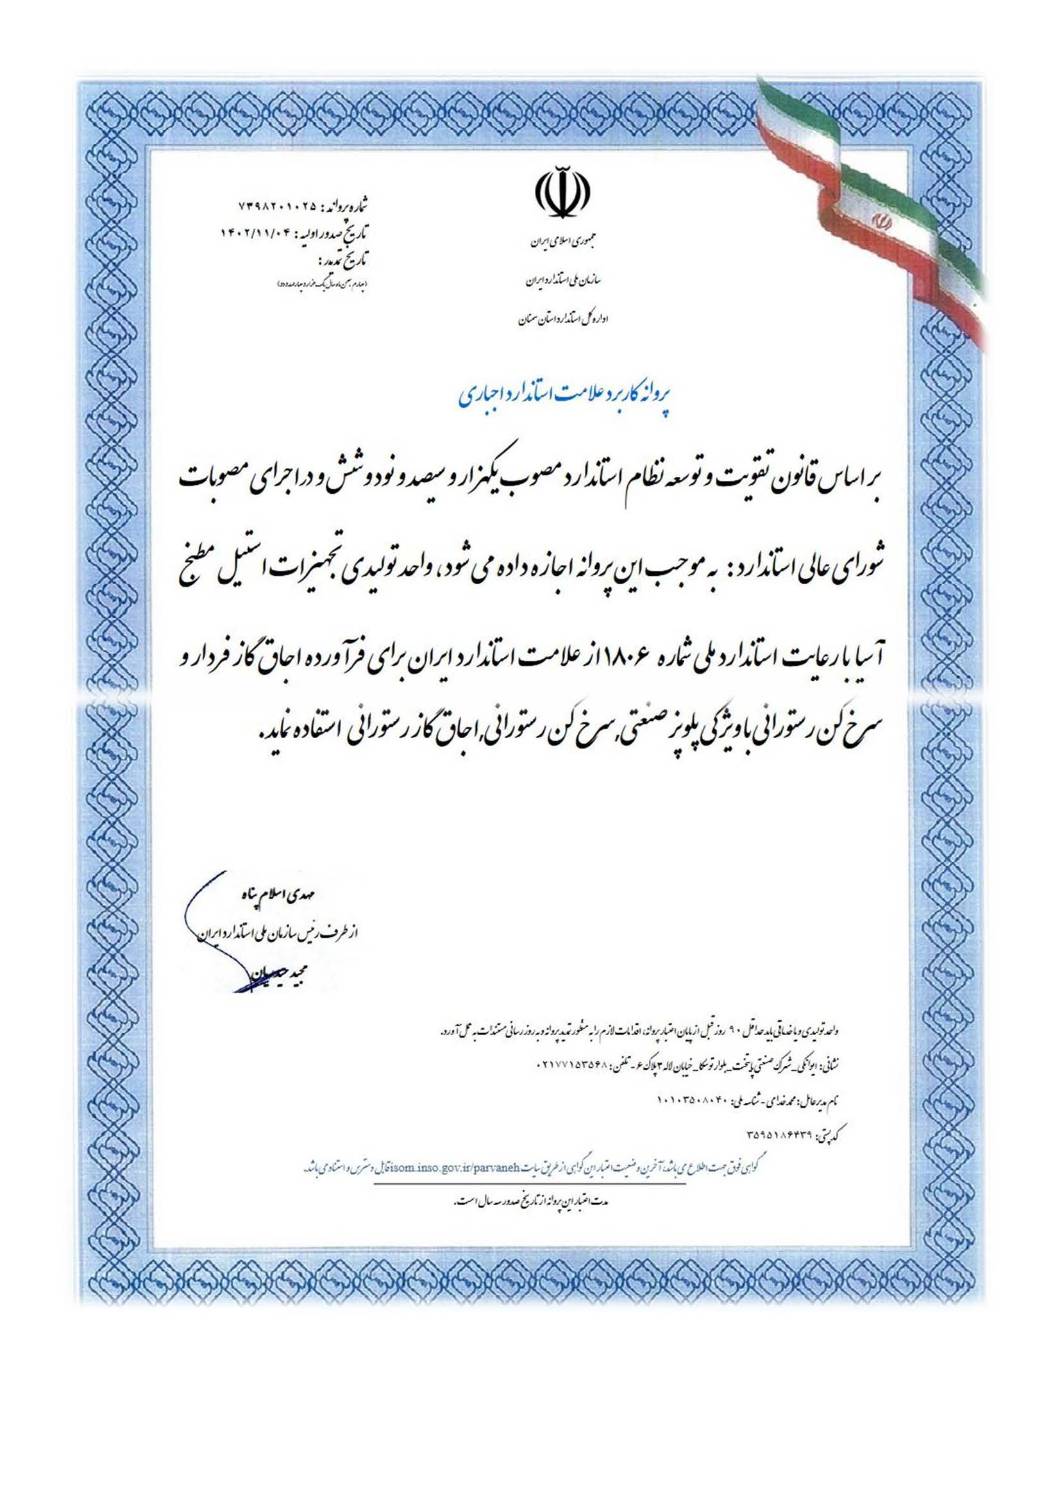 جمهوری اسلامی ایران
سازمان ملی استاندارد ایران
اداره کل استاندارد استان سمنان
شماره پروانه : ۷۳۹۸۲۰۱۰۲۵
تاریخ صدور اولیه : ۱۴۰۲/۱۱/۰۴
تاریخ تمدید :
(چهارم بهمن ماه سال یک هزار و چهارصد و دو)
پروانه کاربرد علامت استاندارد اجباری
بر اساس قانون تقویت و توسعه نظام استاندارد مصوب یکهزار و سیصد و نود و شش و در اجرای مصوبات
شورای عالی استاندارد : به موجب این پروانه اجازه داده می شود، واحد تولیدی تجهیزات استیل مطبخ
آسیا با رعایت استاندارد ملی شماره ۱۸۰۶ از علامت استاندارد ایران برای فرآورده اجاق گاز فردار و
سرخ کن رستورانی با ویژگی پلوپز صنعتی, سرخ کن رستورانی, اجاق گاز رستورانی استفاده نماید.
مهدی اسلام پناه
از طرف رئیس سازمان ملی استاندارد ایران
مجید حیدریان
واحد تولیدی و یا خدماتی باید حداقل ۹۰ روز قبل از پایان اعتبار پروانه، اقدامات لازم را به منظور تمدید پروانه و به روز رسانی مستندات به عمل آورد.
نشانی: ایوانکی_ شهرک صنعتی پایتخت_ بلوار توسکا_ خیابان لاله ۳ پلاک ۶ - تلفن: ۰۲۱۷۷۱۵۳۵۶۸
نام مدیرعامل: محمد خدامی - شناسه ملی: ۱۰۱۰۳۵۰۸۰۴۰
کد پستی: ۳۵۹۵۱۸۶۴۳۹
گواهی فوق جهت اطلاع می باشد، آخرین وضعیت اعتبار این گواهی از طریق سایت isom.inso.gov.ir/parvaneh قابل دسترس و استناد می باشد.
مدت اعتبار این پروانه از تاریخ صدور سه سال است.